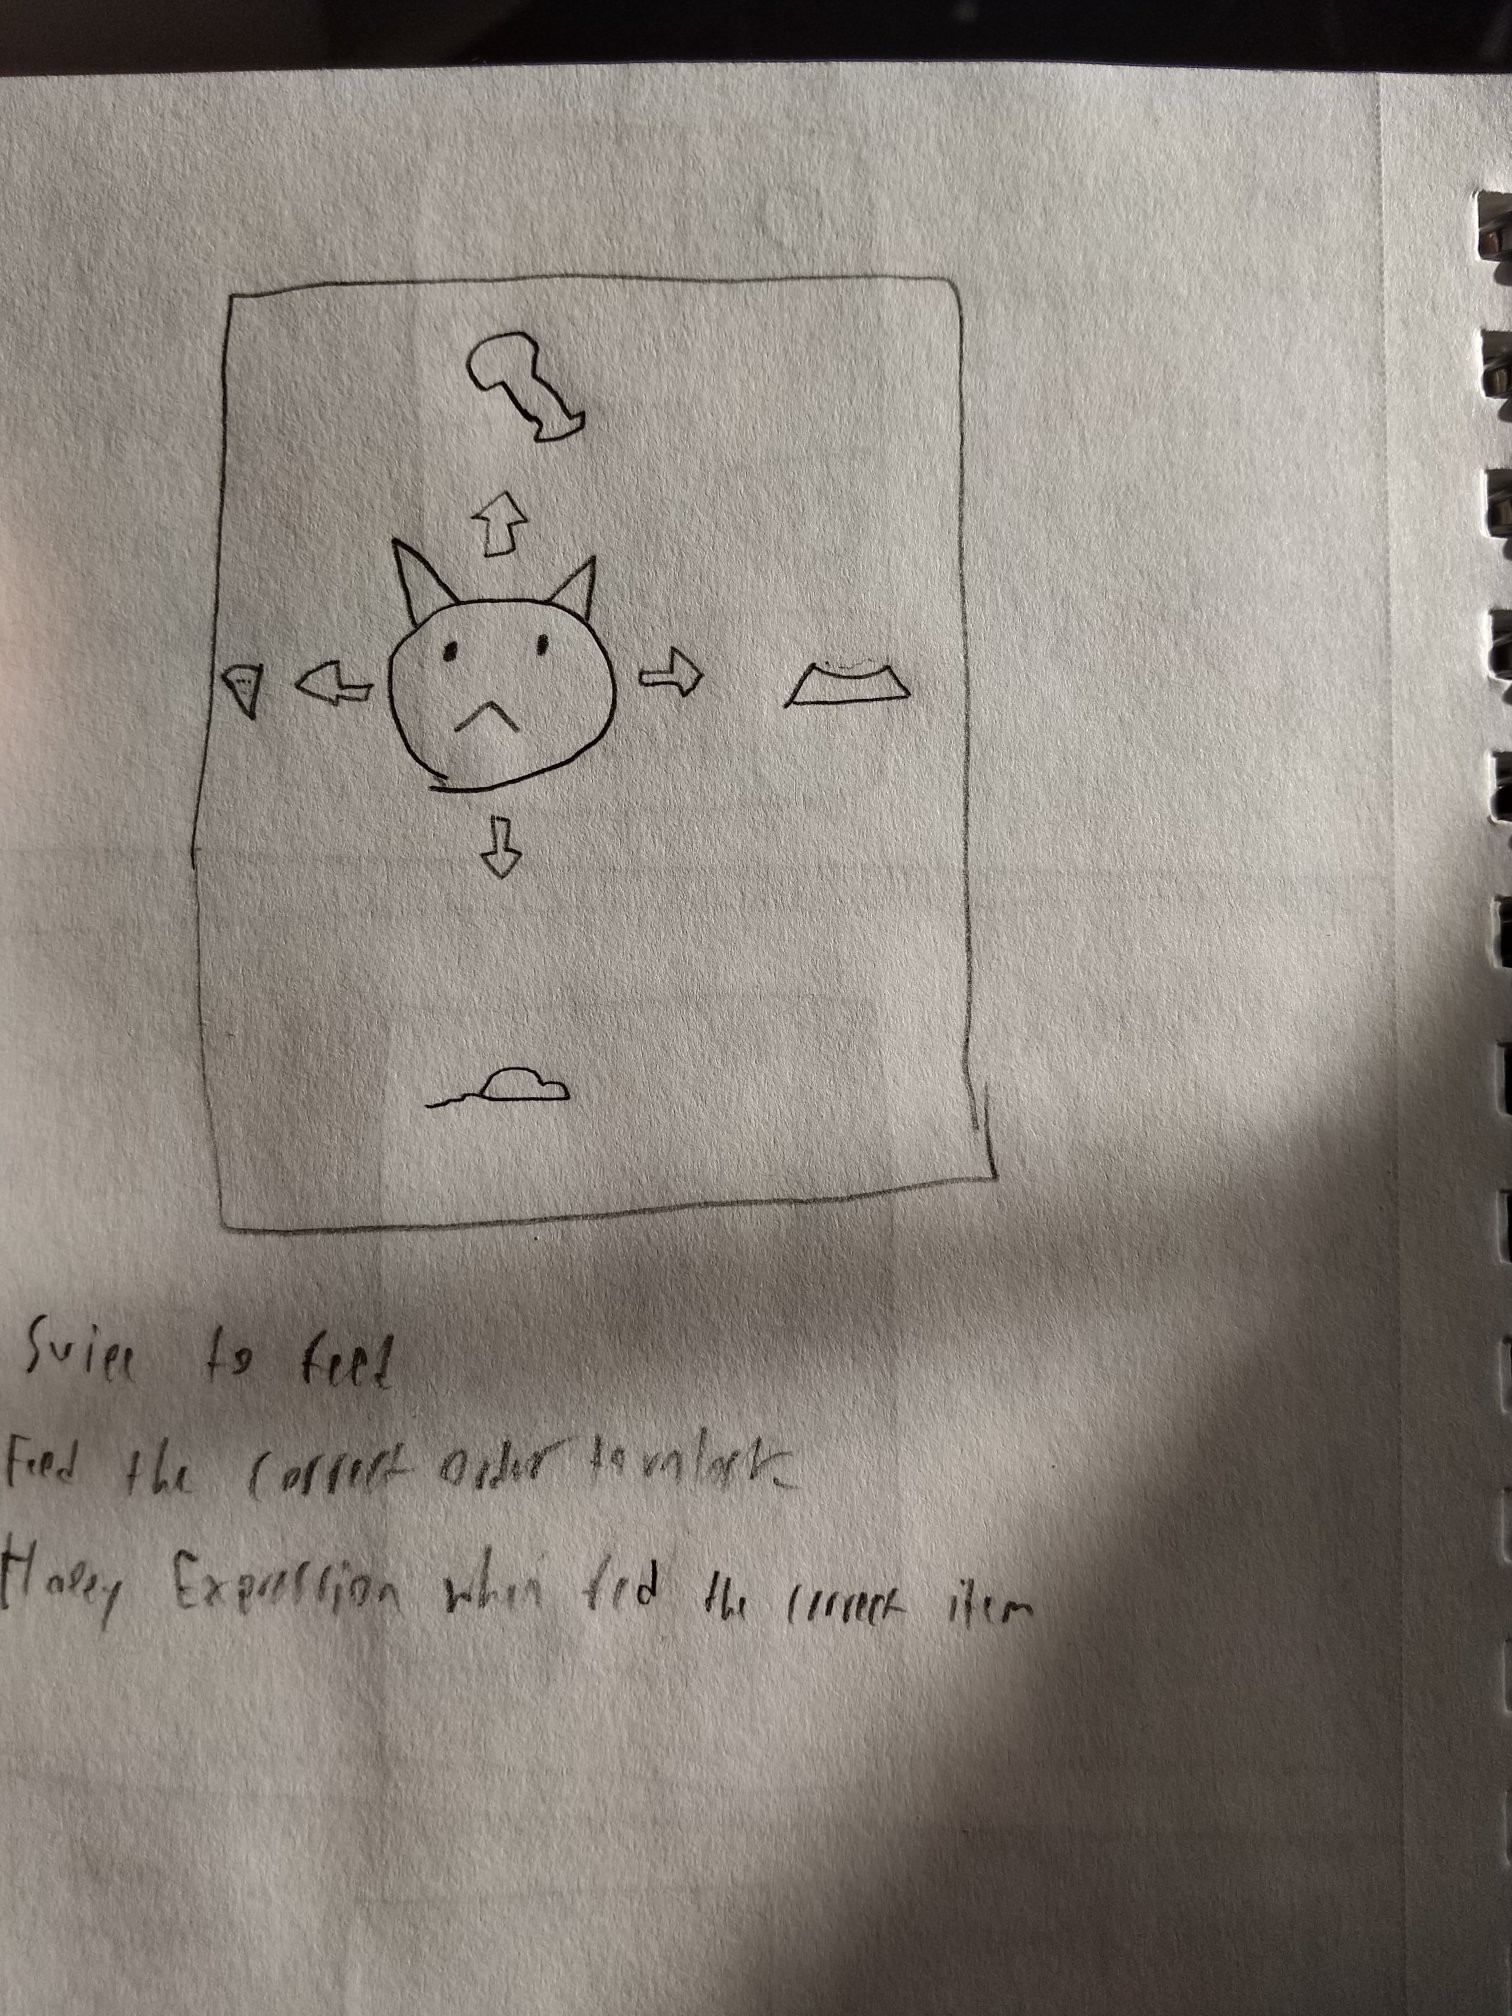 Swipe to feed
Feed the correct order to unlock
Happy Expression when fed the correct item